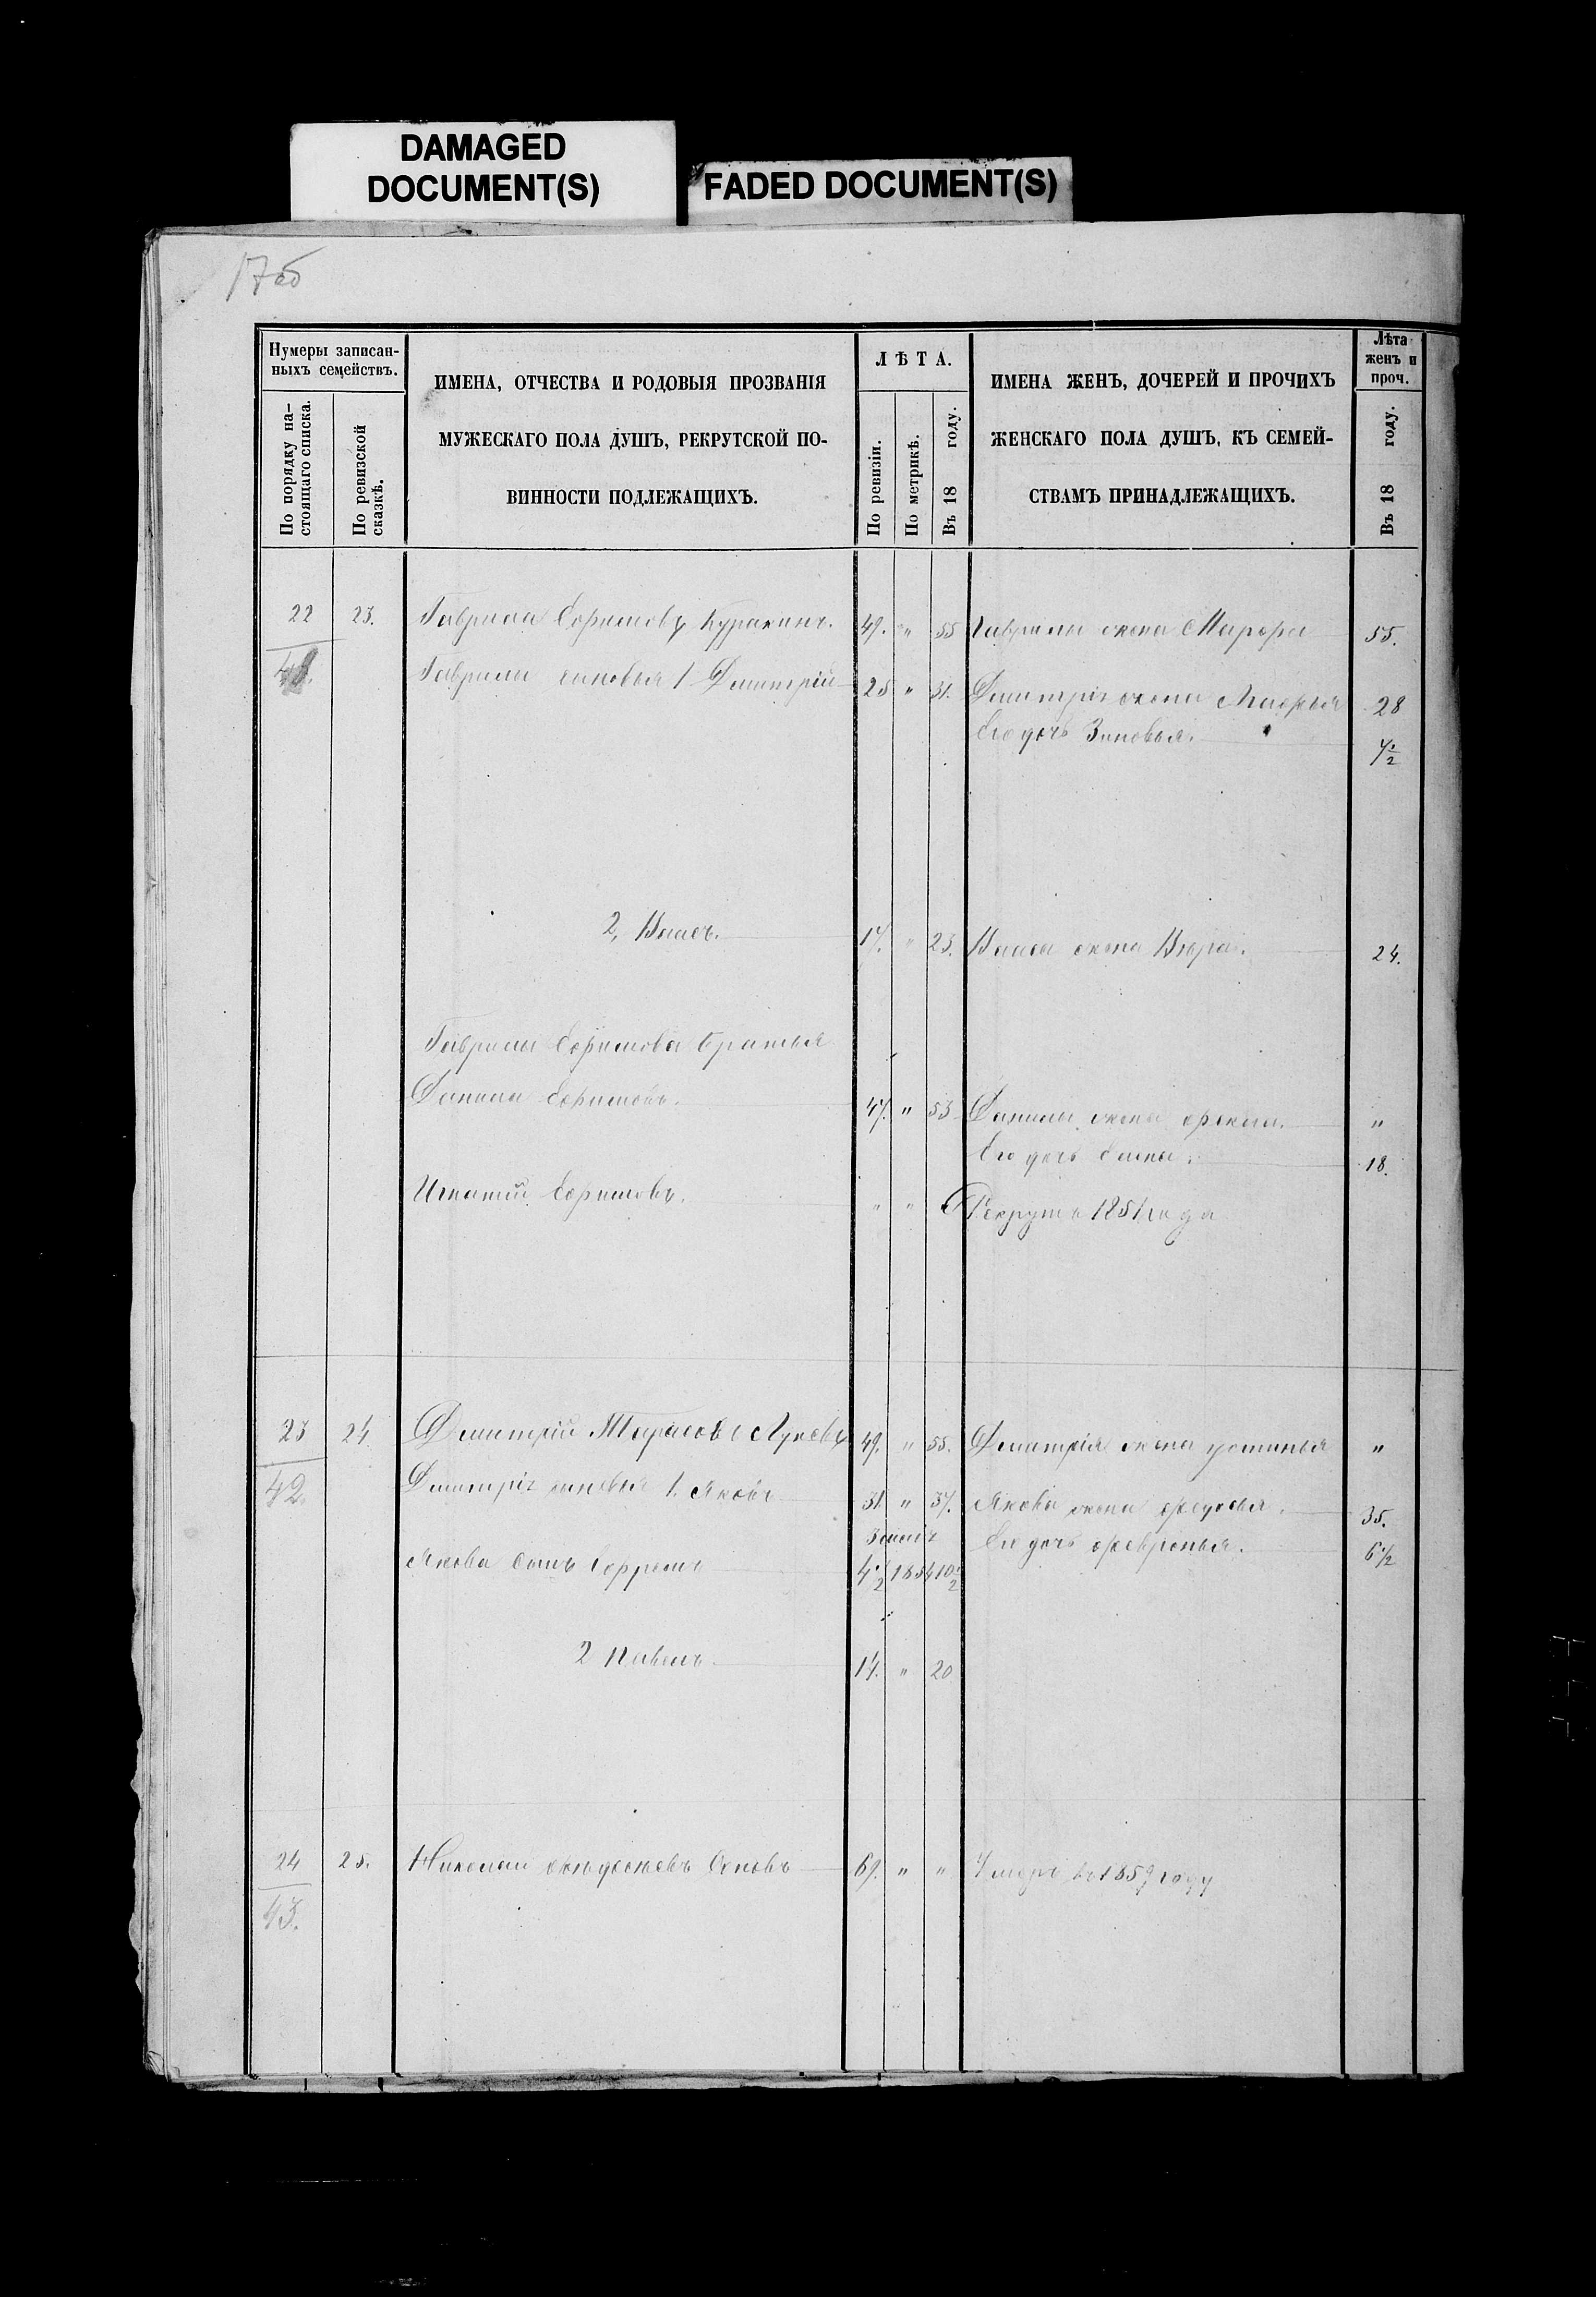 DAMAGED
DOCUMENT(S)
FADED DOCUMENT(S)
17об
Нумеры записан-
ныхъ семействъ.
По порядку на-
стоящаго списка.
По ревизской
сказкѣ.
ИМЕНА, ОТЧЕСТВА И РОДОВЫЯ ПРОЗВАНІЯ
МУЖЕСКАГО ПОЛА ДУШЪ, РЕКРУТСКОЙ ПО-
ВИННОСТИ ПОДЛЕЖАЩИХЪ.
ЛѢТА.
По ревизіи.
По метрикѣ.
Въ 18 году.
ИМЕНА ЖЕНЪ, ДОЧЕРЕЙ И ПРОЧИХЪ
ЖЕНСКАГО ПОЛА ДУШЪ, КЪ СЕМЕЙ-
СТВАМЪ ПРИНАДЛЕЖАЩИХЪ.
Лѣта
женъ и
проч.
Въ 18 году.
22 23. Гаврила Ефимовъ Куракинъ. 49. " 55 Гаврилы жена Марфа 55.
Гаврилы сыновья 1 Дмитрій 25 " 31. Дмитрія жена Марья 28
Его дочь Зиновья. 4 1/2
2, Власъ. 17. " 23. Власа жена Вѣра. 24.
Гаврилы Ефимова братья
Данила Ефимовъ. 47. " 53 Данилы жена "
Его дочь Елена. 18.
Игнатій Ефимовъ. " " Рекрутъ 1851 года
23 24 Дмитрій Тарасовъ 49. " 55. Дмитрія жена Устинья "
42. Дмитрія сыновья 1. Яковъ 31. " 37. Якова жена Федосья. 35.
Его дочь Февронья. 6 1/2
Якова сынъ Ефремъ 4 1/2 1854 10 1/2
2 Павелъ 14. " 20
24 25. Николай Осиповъ 69. " " Умеръ въ 1859 году
43.